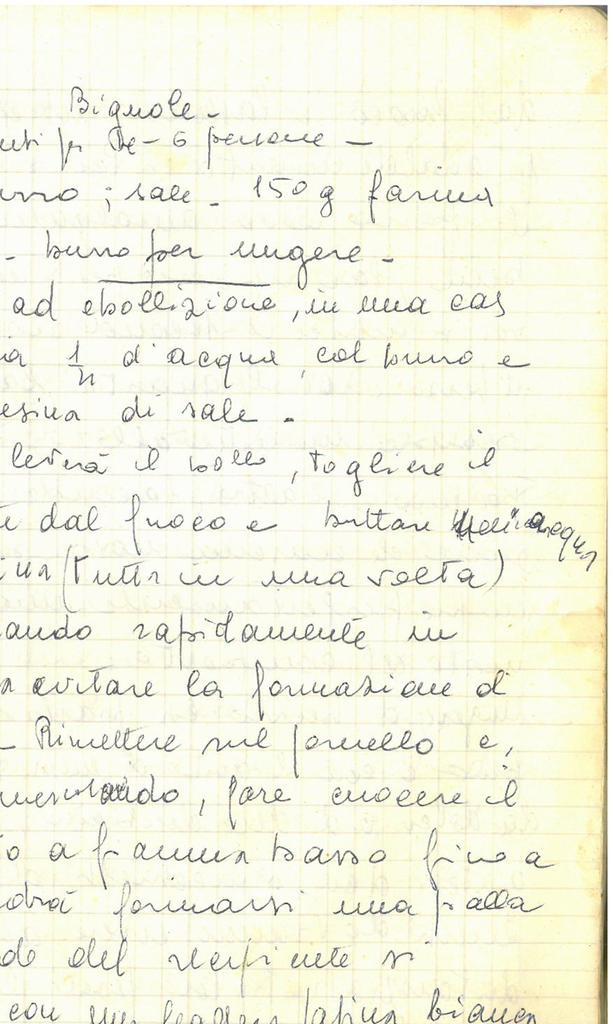 Bignole -
nti per 4 - 6 persone -
urro ; sale - 150 g farina
- burro per ungere -
ad ebollizione, in una cas
ia 1/4 d'acqua, col burro e
esina di sale -
leverà il bollo, togliere il
te dal fuoco e buttare nell'acqua
ina (tutta in una volta)
ando rapidamente in
a evitare la formazione di
- Rimettere sul fornello e,
mescolando, fare cuocere il
to a fiamma bassa fino a
drà formarsi una palla
do del recipiente si
con una leggera patina bianca